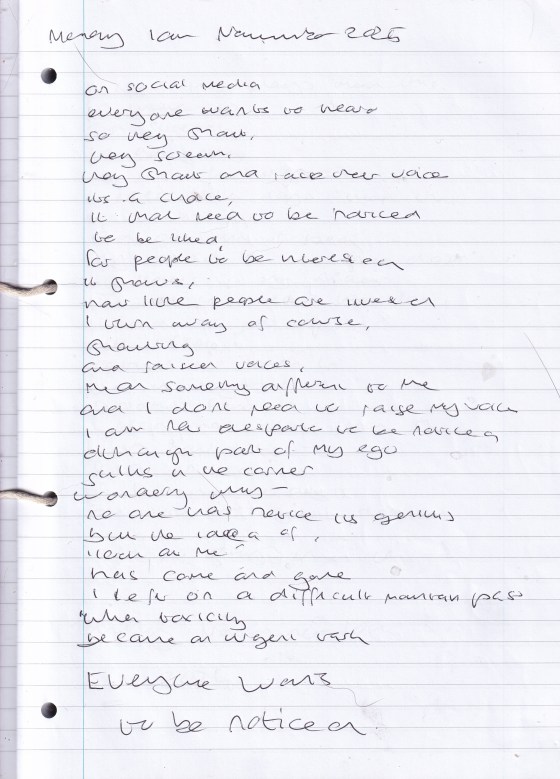 Monday 10th November 2025
on social media
everyone wants to hear
so they shout,
they scream,
they shout and raise their voice
its a choice,
it that need to be noticed
to be liked,
for people to be interested
it shows,
how little people are interested
I turn away of course,
shouting
and raised voices,
mean something different to me
and I dont need to raise my voice
I am not desperate to be noticed
although part of my ego
sulks in the corner
wondering why –
no one has notice its genius
but the idea of,
"look at me"
has come and gone
I left on a difficult mountain pass
when toxicity
became an urgent
Everyone wants
to be noticed.